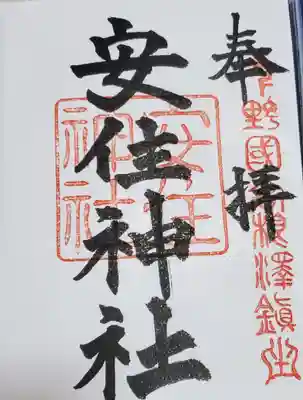 奉拝
下野國高根澤鎮坐
安住神社
安住神社